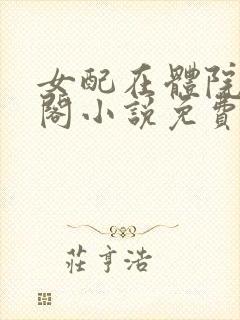 女配在體院
閣小說免費
莊亨浩